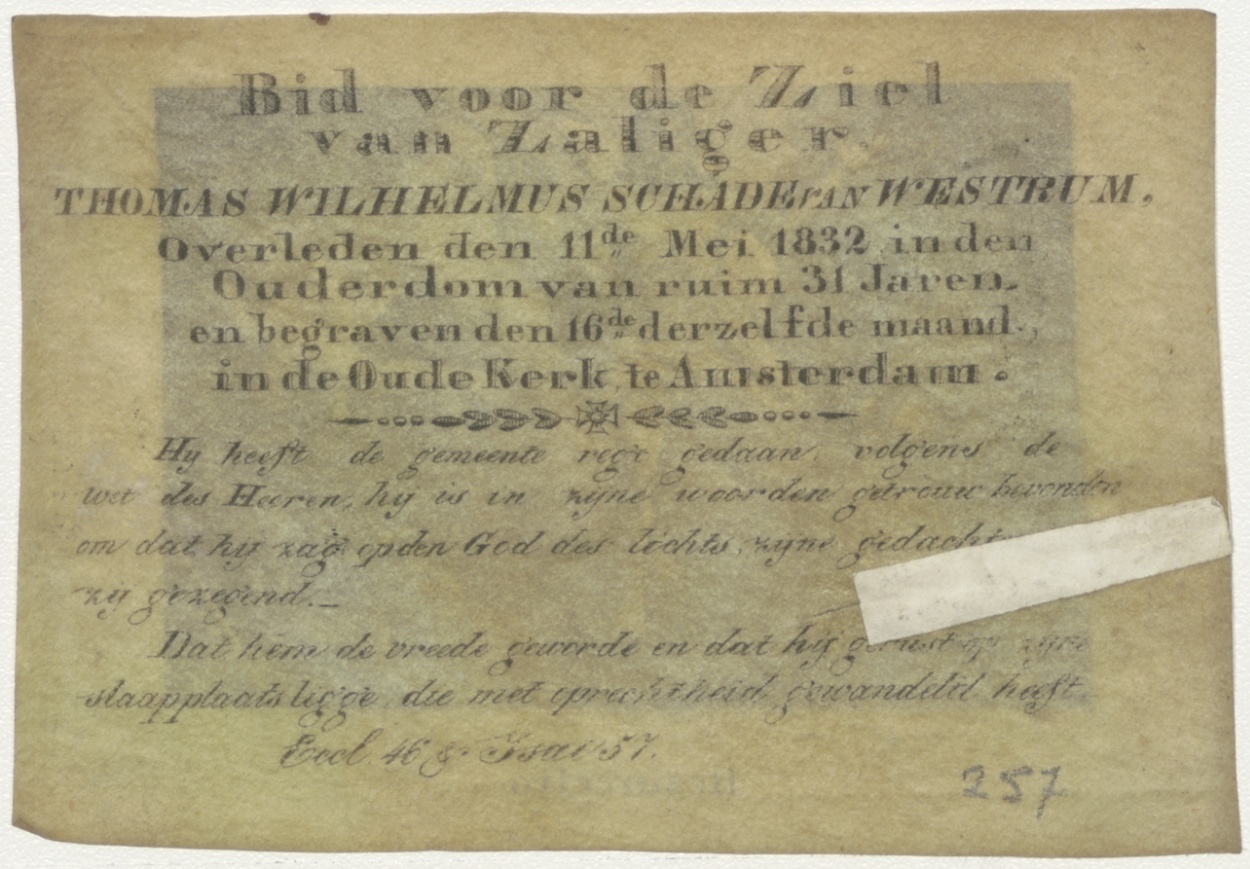 Bid voor de Ziel
van Zaliger.
THOMAS WILHELMUS SCHADE VAN WESTRUM,
Overleden den 11de Mei 1832 in den
Ouderdom van ruim 31 Jaren.
en begraven den 16de derzelfde maand.,
in de Oude Kerk te Amsterdam.
Hy heeft de gemeente regt gedaan, volgens de
wet des Heeren, hy is in zyne woorden getrouw bevonden
om dat hy zag op den God des lichts, zyne gedacht
zy gezegend._
Dat hem de vreede geworde en dat hij gerust op zijne
slaapplaats ligge, die met oprechtheid gewandeld heeft.
Eccl. 46 & Isai 57.
257